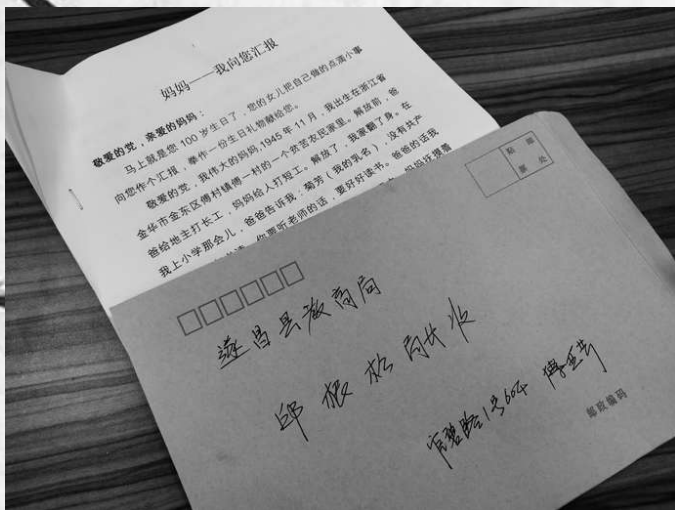 妈妈——我向您汇报
敬爱的党，亲爱的妈妈：
马上就是您 100 岁生日了，您的女儿把自己做的点滴小事
向您作个汇报，拳作一份生日礼物献给您。
敬爱的党，我伟大的妈妈,1945 年 11 月，我出生在浙江省
金华市金东区傅村镇傅一村的一个贫苦农民家里。解放前，爸
爸给地主打长工，妈妈给人打短工。解放了，我家翻了身。在
我上小学那会儿，爸爸告诉我：菊芳（我的乳名），没有共产
你要听老师的话，要好好读书。爸爸的话我
妈妈抚摸着
贴 邮
票 处
遂昌县教育局
邱根松局长收
官碧路1号604 傅亚芳
邮政编码